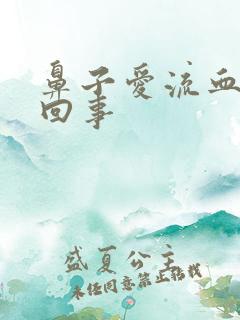 鼻子愛流血
回事
盛夏公主
未经同意禁止转载